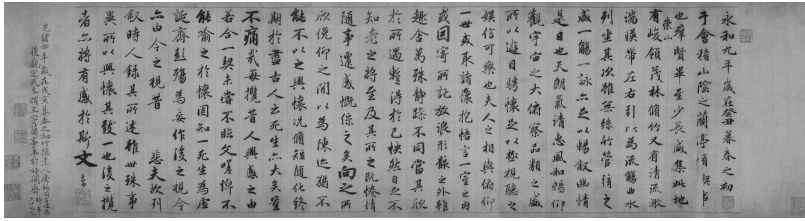 永和九年歲在癸丑暮春之初
于會稽山陰之蘭亭脩禊事
也群賢畢至少長咸集此地
有崇山峻領茂林脩竹又有清流激
湍暎帶左右引以為流觴曲水
列坐其次雖無絲竹管弦之
盛一觴一詠亦足以暢敘幽情
是日也天朗氣清惠風和暢仰
觀宇宙之大俯察品類之盛
所以遊目騁懷足以極視聽之
娛信可樂也夫人之相與俯仰
一世或取諸懷抱悟言一室之內
或因寄所託放浪形骸之外雖
趣舍萬殊靜躁不同當其欣
於所遇蹔得於己怏然自足不
知老之將至及其所之既惓情
隨事遷感慨係之矣向之所
欣俛仰之閒以為陳迹猶不
能不以之興懷況脩短隨化終
期於盡古人云死生亦大矣豈
不痛哉每攬昔人興感之由
若合一契未嘗不臨文嗟悼不
能喻之於懷固知一死生為虛
誕齊彭殤為妄作後之視今
亦由今之視昔 悲夫故列
叙時人錄其所述雖世殊事
異所以興懷其致一也後之攬
者亦將有感於斯文
光緒四年歲在戊寅暮春之初